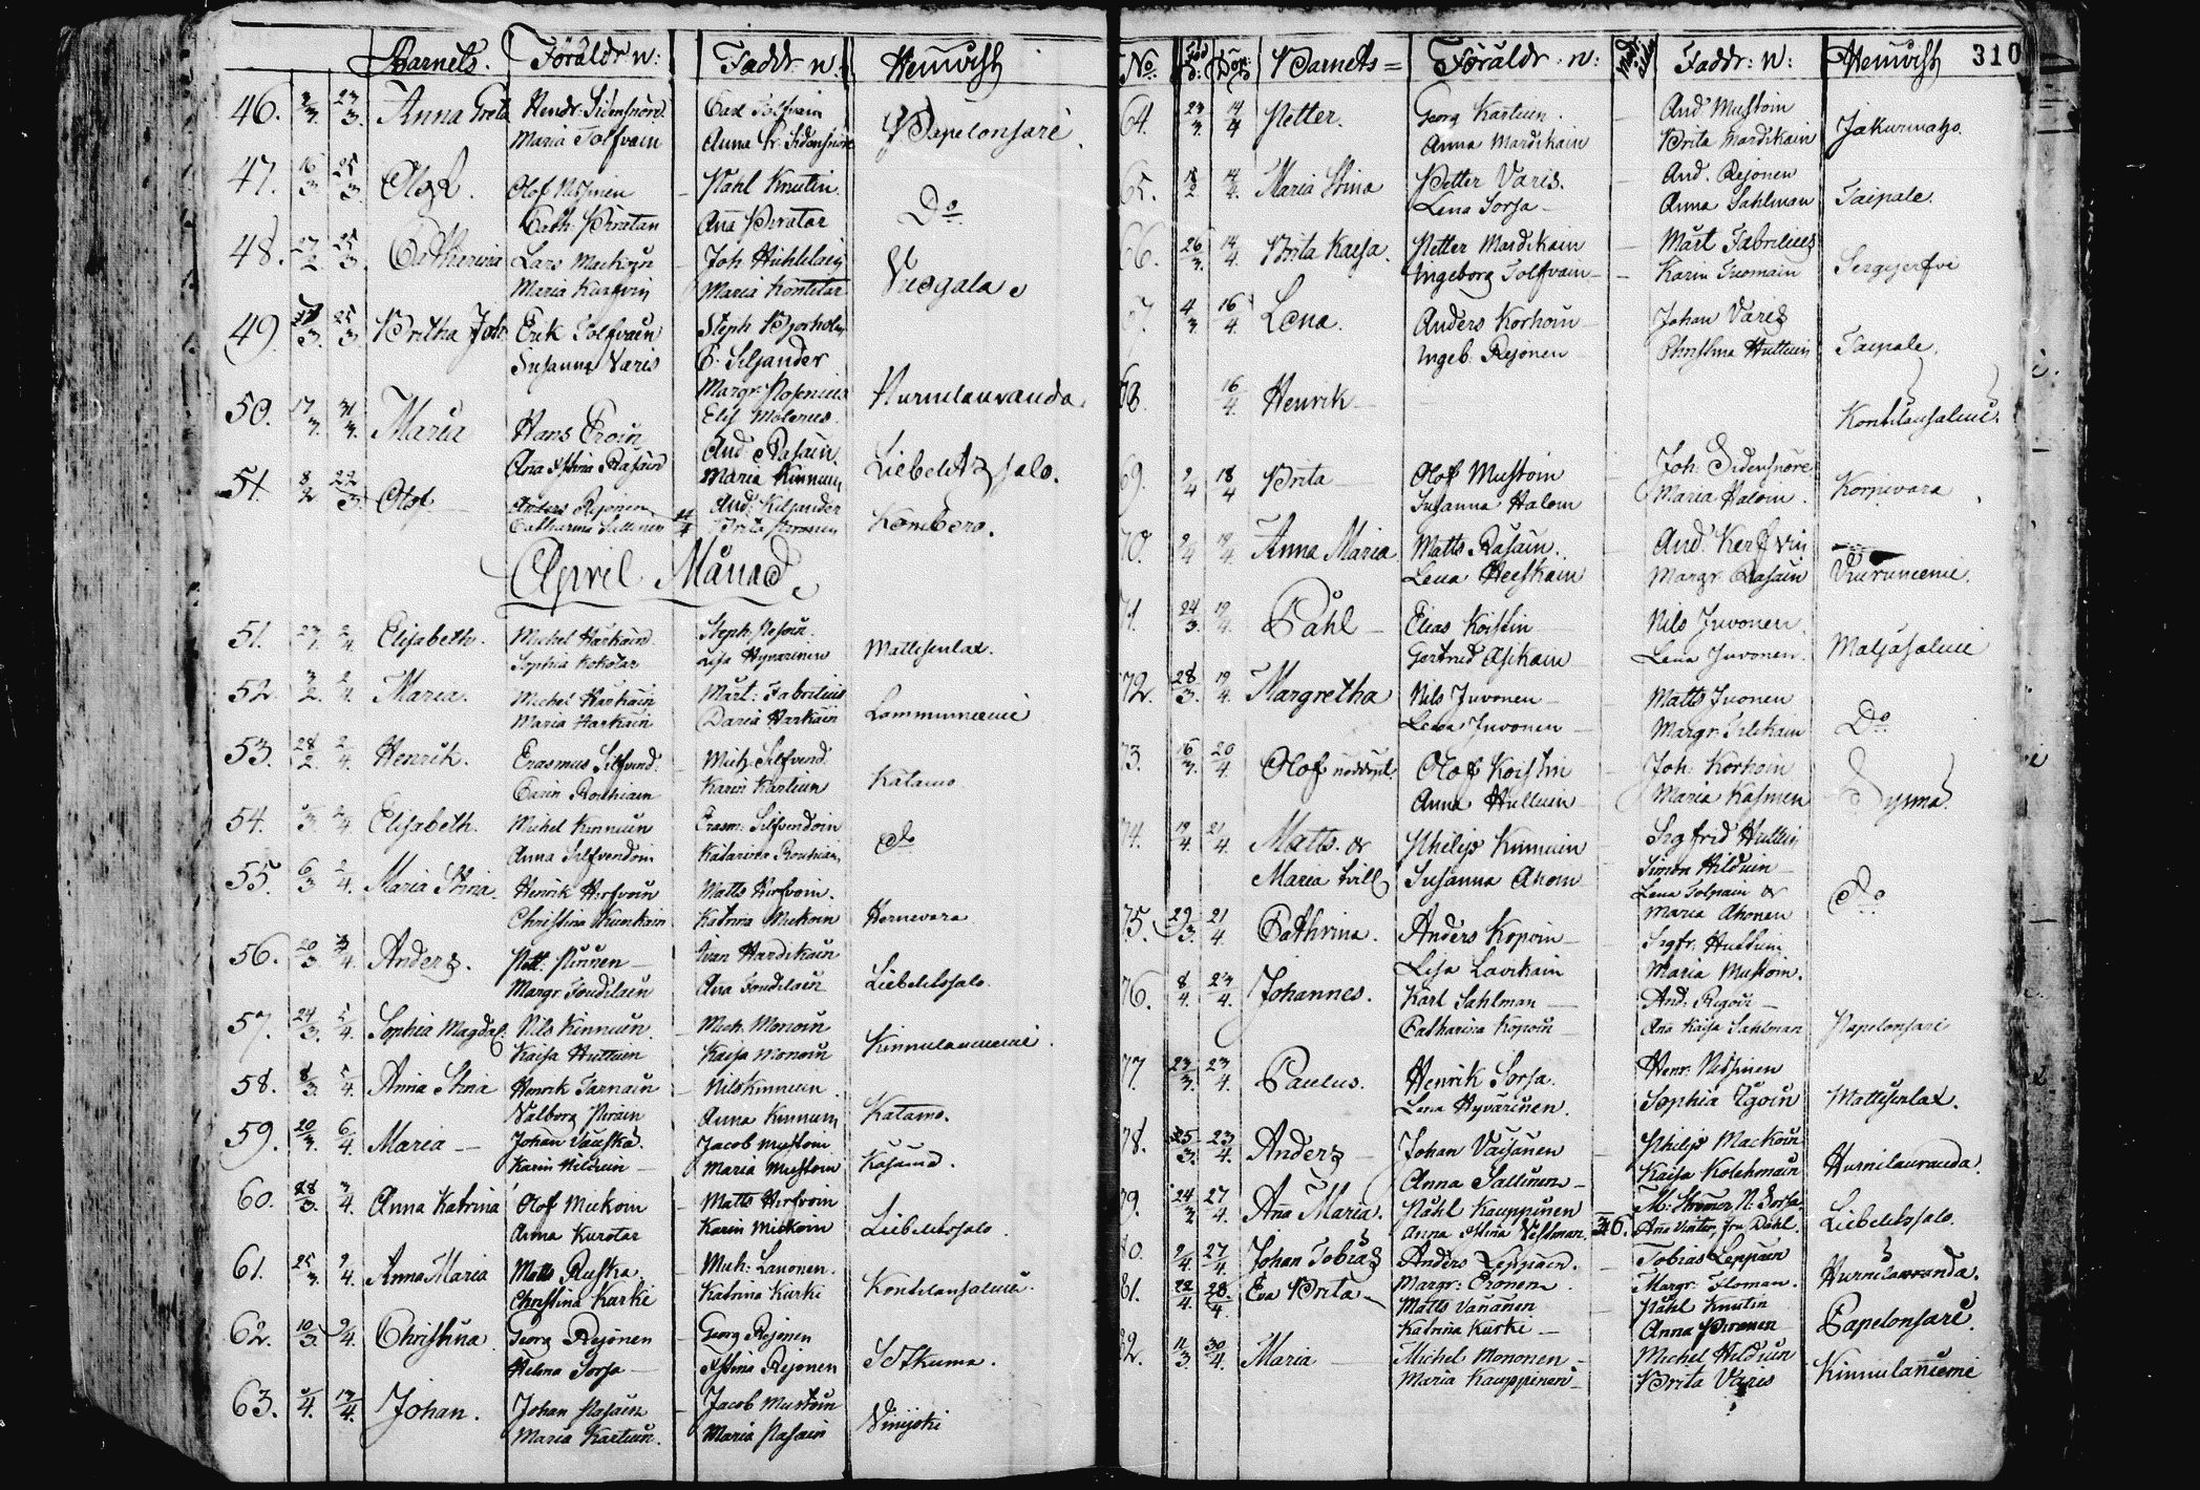 Barnets. Föräldr: n: Faddr: n: Hemvist
46. 3/3. 23/3. Anna Greta Hendr: Sidensnöre Carl Tolfvain
Maria Tolfvain Anna Kr. Sidensnöre Papelonsari
47. 16/3 25/3. Olof. Olof Nissinen Påhl Knutin
Cath: Piratar Ana Piratar Do
48. 27/2 25/3. Catharina Lars Mackoin Joh
Maria Maria Kontitar
49. 3. 25/3 Britha Joh: Erik Tolfvain Steph Bjorholm
Susanna Varis C. Siljander
Margr: Rosenius Hurnulauranda
50. 17/3. 31/3. Maria Hans Eroin Elis Molerus
Ana Stina Rasain And Rasain Liebelitzsalo.
51. 8/2 22/3 Olof Anders Rejonen Maria Kinnuin
Catharina Sallinen And: Kiljander
Brita Kombero.
April Månad
51. 23/3. 2/4. Elisabeth. Michel Harkain Steph:
Sophia Kokotar Lisa Hyvarinen Mattisenlax.
52. 3/2. 2/4 Maria. Michel Harkain Mårt: Fabritius
Maria Harkain Daria Harkain Lammunniemi
53. 28/2. 2/4. Henrik. Erasmus Silfvend. Mich. Silfvend.
Carin Rouhiain Karin Kartuin Katamo
54. 3. 2/4 Elisabeth. Michel Kinnuin Erasm: Silfvendoin
Anna Silfvendoin Katarina Rouhiain Do
55. 6/3 2/4. Maria Stina. Henrik Hirfvoin Matts Hirfvoin.
Christina Katrina Mickoin Hernevara
56. 20/3 4. Anders. Pett: Pünnen Ivan Hardikain
Margr: Toudilain Ana Toudilain Liebelitssalo.
57. 24/3. 5/4. Sophia Magdal: Nils Kinnuin Mich: Monoin
Kaisa Huttuin Kaisa Monoin Kinnulanniemi.
58. 8/3. 5/4 Anna Stina Henrik Tarnain Nils Kinnuin
Valborg Pirain Anna Kinnuin Katamo.
59. 20/3. 6/4. Maria Johan Vauska Jacob Mustoin
Karin Hilduin Maria Mustoin Kasama.
60. 28/3. 7/4. Anna Katrina Olof Mickoin Matts Hirfvoin
Anna Kurotar Karin Mickoin Liebelitssalo.
61. 25/3. 9/4. Anna Maria Matts Ruska Mich: Lauonen.
Christina Karki Katrina Kurki Kontilansalmi.
62. 10/3. 9/4. Christina. Georg Rejonen Georg Rejonen
Helena Sorsa Stina Rejonen Sotkuma.
63. 5/4. 13/4. Johan. Johan Pasain Jacob Mustoin
Maria Kartuin. Maria Pasain Vinijoki
No. Föd: Döpt Barnets Föräldr: n: Faddr: n: Hemvist 310
64. 23/3. 14/4 Petter. Georg Kartuin. And Mustoin
Anna Mardikain Brita Mardikain Jakurinaho.
65. 18/2 14/4. Maria Stina Petter Varis. And. Rejonen
Lena Sorsa Anna Sahlman Taipale.
66. 26/3. 14/4. Brita Kaisa. Petter Mardikain Mårt Fabritius
Ingeborg Tolfvain Karin Tuomain Sergejerfvi
67. 4/3. 16/4. Lena. Anders Korhoin Johan Varis
Ingeb: Rejonen Christina Huttuin Taipale.
68. 16/4. Henrik Kontilansalmi.
69. 9/4 18/4 Brita Olof Mustoin Joh: Sidensnöre
Susanna Haloin Maria Haloin. Korpivara
70. 9/4 19/4 Anna Maria Matts Rasain. And:
Lena Heiskain Margr: Rasain
71. 24/3. 19/4. Påhl Elias Koistin Nils Juvonen.
Gertrud Asikain Lena Juvonen. Matjasalmi
72. 28/3. 19/4. Margretha Nils Juvonen Matts Juonen
Lena Juvonen Margr: Do
73. 16/3. 20/4. Olof nöddöpt. Olof Koistin Joh: Korhoin
Anna Huttuin Maria Kasinen Sysmä.
74. 19/4. 21/4. Matts. & Philip Kinnuin Sigfrid Huttuin
Maria tvill Susanna Ahoin Simon Hilduin
Lena Tolpain &
Maria Ahonen Do
75. 29/3. 21/4. Cathrina. Anders Kopoin Sigfr: Huttuin
Lisa Lavikain Maria Mustoin.
76. 8/4. 23/4. Johannes. Karl Sahlman And: Rigoin
Catharina Kopoin Ana Kaisa Sahlman Papelonsari
77. 23/3. 23/4. Paulus. Henrik Sorsa. Henr: Nissinen
Lena Hyvärinen. Sophia Ugoin Mattisenlax.
78. 25/3. 23/4. Anders Johan Väisänen Philip Mackoin
Anna Sallinen Kaisa Kolehmain Hurnilauranda.
79. 24/2 27/4. Ana Maria. Påhl Kauppinen M: Strömer N: Sorsa.
Anna Stina Vestman. 36. Ana Vinter, fru Dahl. Liebelitssalo.
80. 9/4 27/4 Johan Tobias Anders Leppain. Tobias Leppain
Margr: Eronen Margr: Floman. Hurnilauranda.
81. 22/4. 28/4. Eva Brita Matts Vänänen Påhl Knutin
Katrina Kurki Anna Pironen Papelonsari.
82. 11/3. 30/4. Maria Michel Mononen Michel Hilduin
Maria Kauppinen Brita Varis Kinnulaniemi